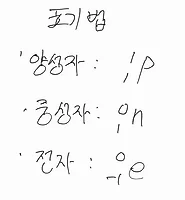 표기법
· 양성자 : ¹₁p
· 중성자 : ¹₀n
· 전자 : ⁰₋₁e